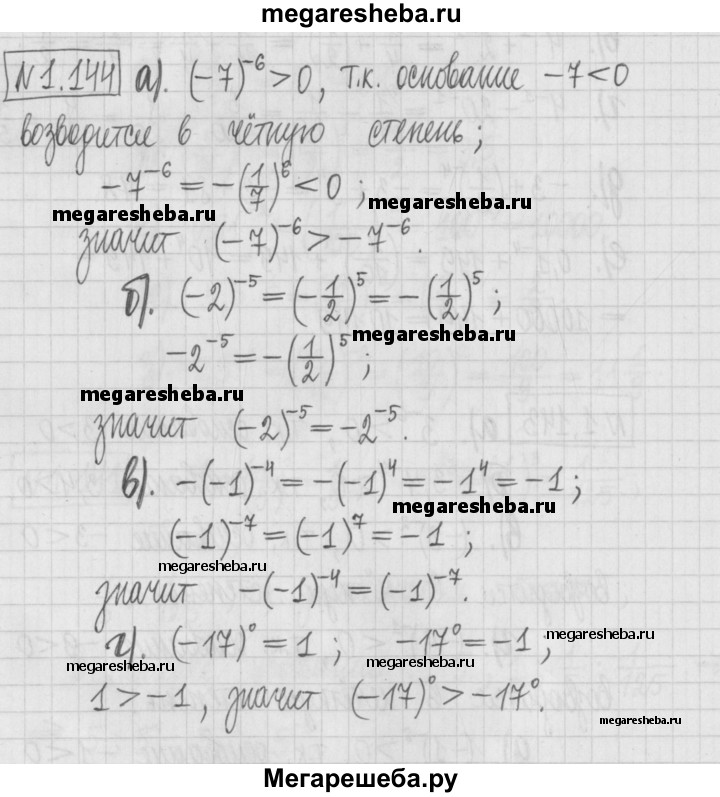 megaresheba.ru
№1.144 а). (-7)⁻⁶ > 0, т.к. основание -7 < 0
возводится в чётную степень;
-7⁻⁶ = -(1/7)⁶ < 0 ;
megaresheba.ru megaresheba.ru
значит (-7)⁻⁶ > -7⁻⁶.
б). (-2)⁻⁵ = (-1/2)⁵ = -(1/2)⁵ ;
megaresheba.ru
-2⁻⁵ = -(1/2)⁵ ;
megaresheba.ru
значит (-2)⁻⁵ = -2⁻⁵.
в). -(-1)⁻⁴ = -(-1)⁴ = -1⁴ = -1 ;
megaresheba.ru
(-1)⁻⁷ = (-1)⁷ = -1 ;
megaresheba.ru
значит -(-1)⁻⁴ = (-1)⁻⁷.
г). (-17)⁰ = 1 ; -17⁰ = -1 ;
megaresheba.ru megaresheba.ru
1 > -1 , значит (-17)⁰ > -17⁰.
megaresheba.ru
Мегарешеба.ру